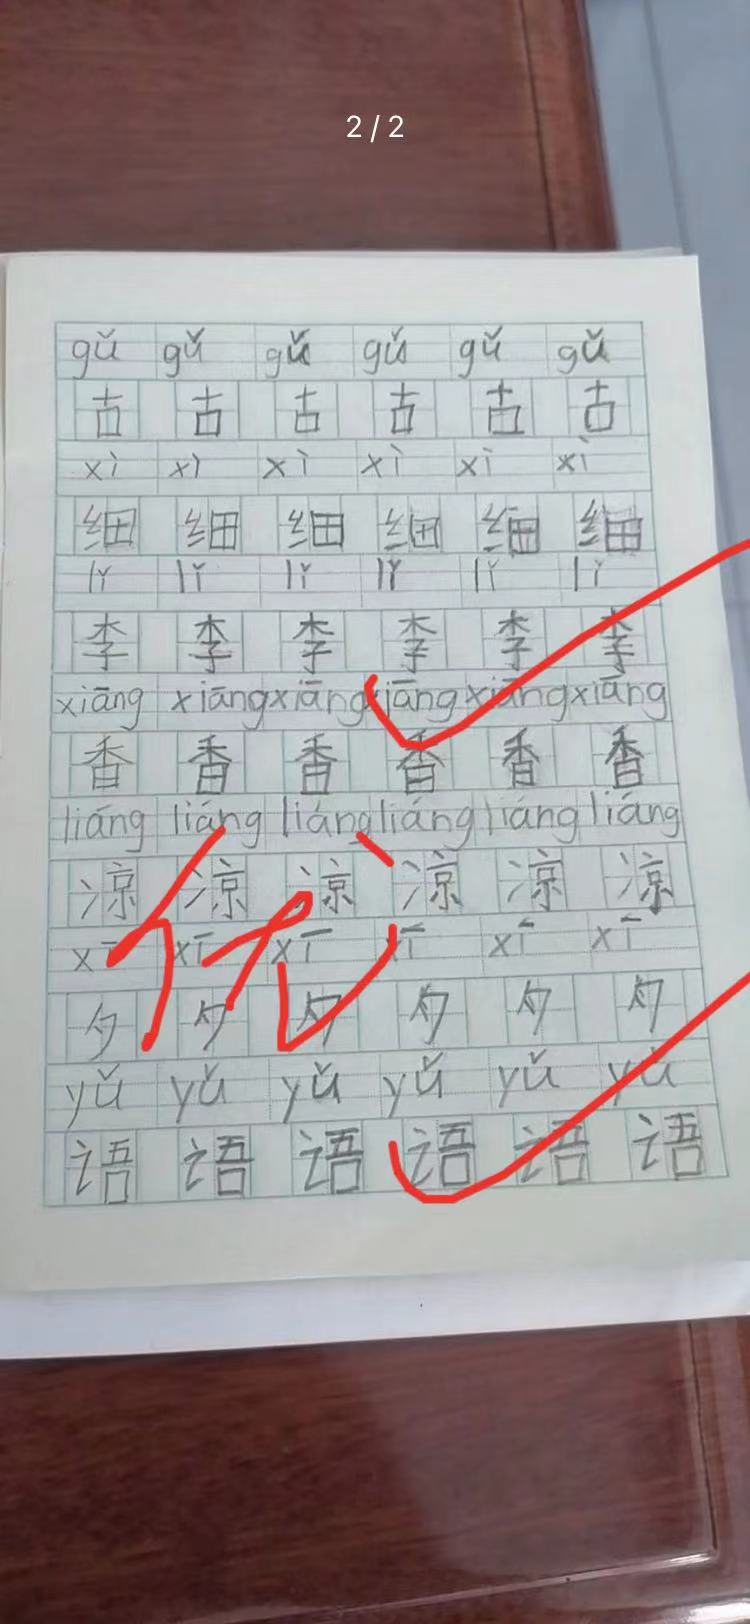 2 / 2
gǔ gǔ gǔ gǔ gǔ gǔ
古 古 古 古 古 古
xì xì xì xì xì xì
细 细 细 细 细 细
lǐ lǐ lǐ lǐ lǐ lǐ
李 李 李 李 李 李
xiāng xiāng xiāng xiāng xiāng xiāng
香 香 香 香 香 香
liáng liáng liáng liáng liáng liáng
凉 凉 凉 凉 凉 凉
xī xī xī xī xī xī
夕 夕 夕 夕 夕 夕
yǔ yǔ yǔ yǔ yǔ yǔ
语 语 语 语 语 语
优